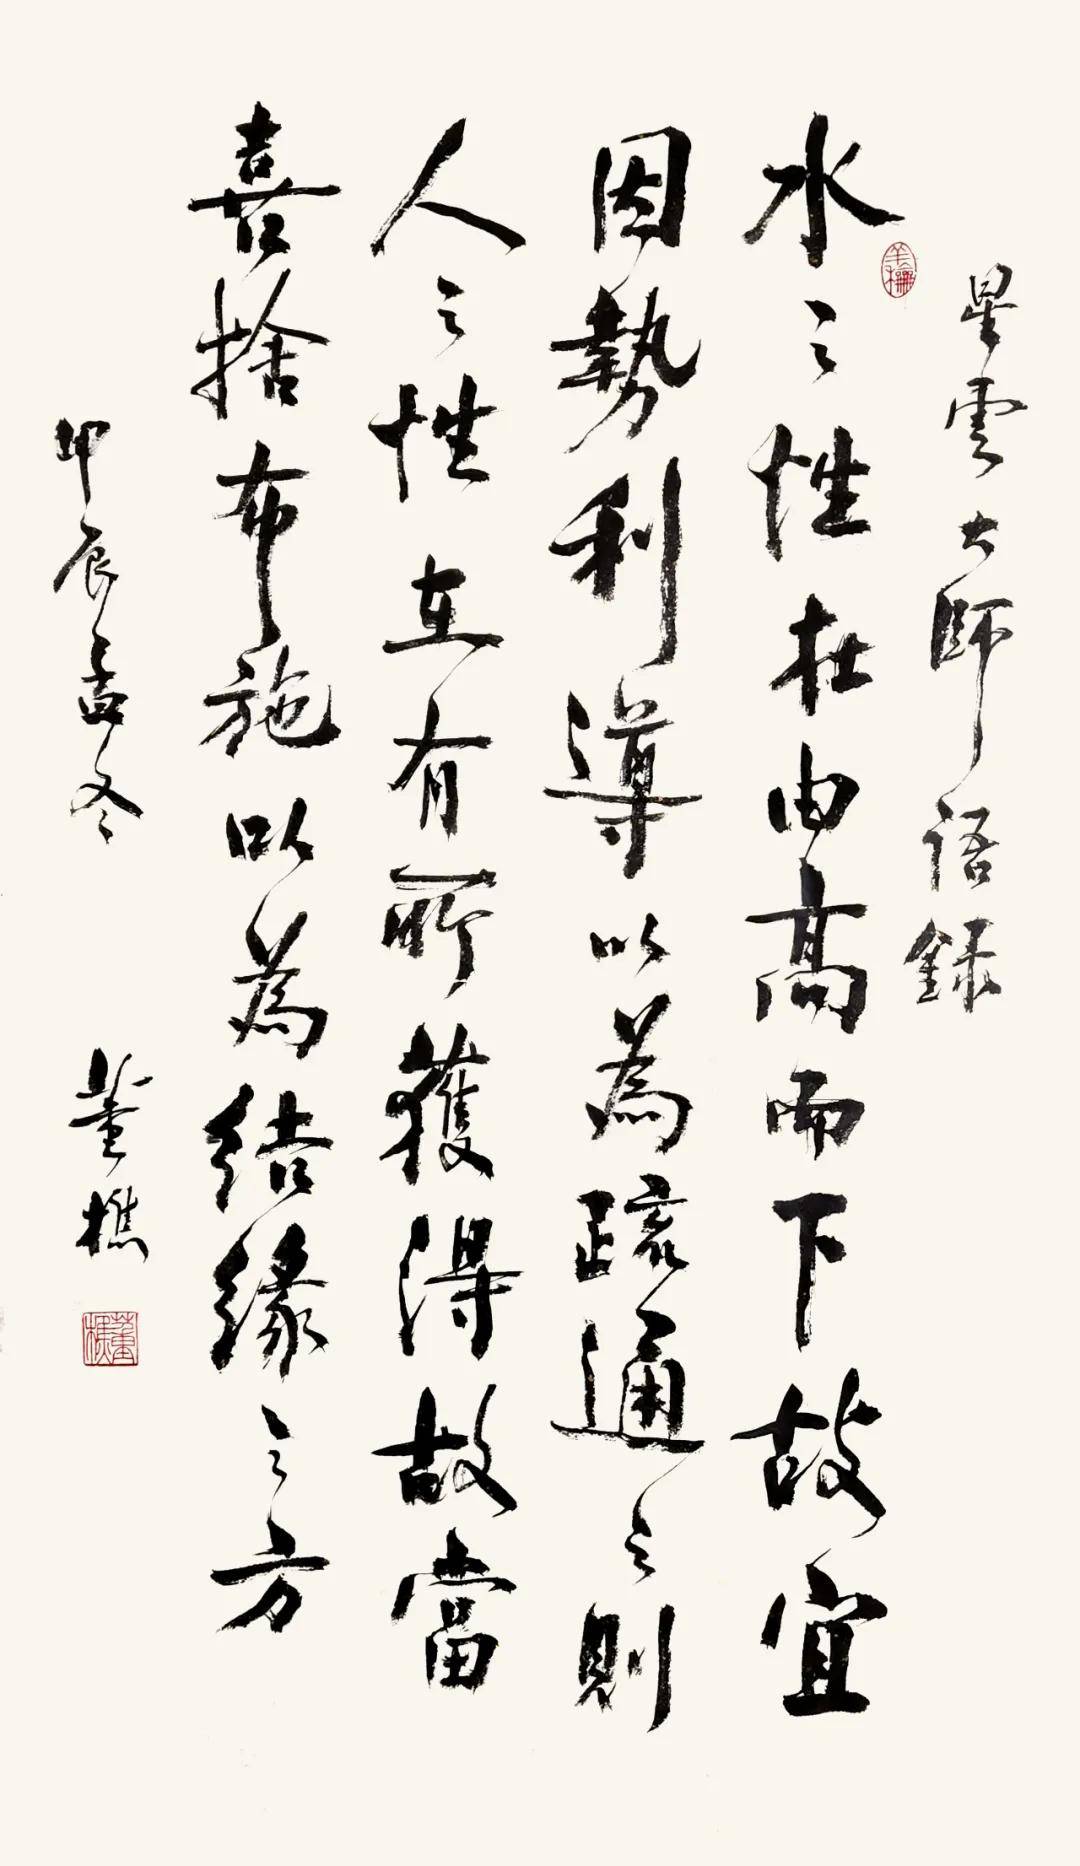 星雲大師語録
水之性在由高而下故宜
因勢利導以為疏通之則
人之性在有所獲得故當
喜捨布施以為結緣之方
甲辰孟冬
董樵
董樵